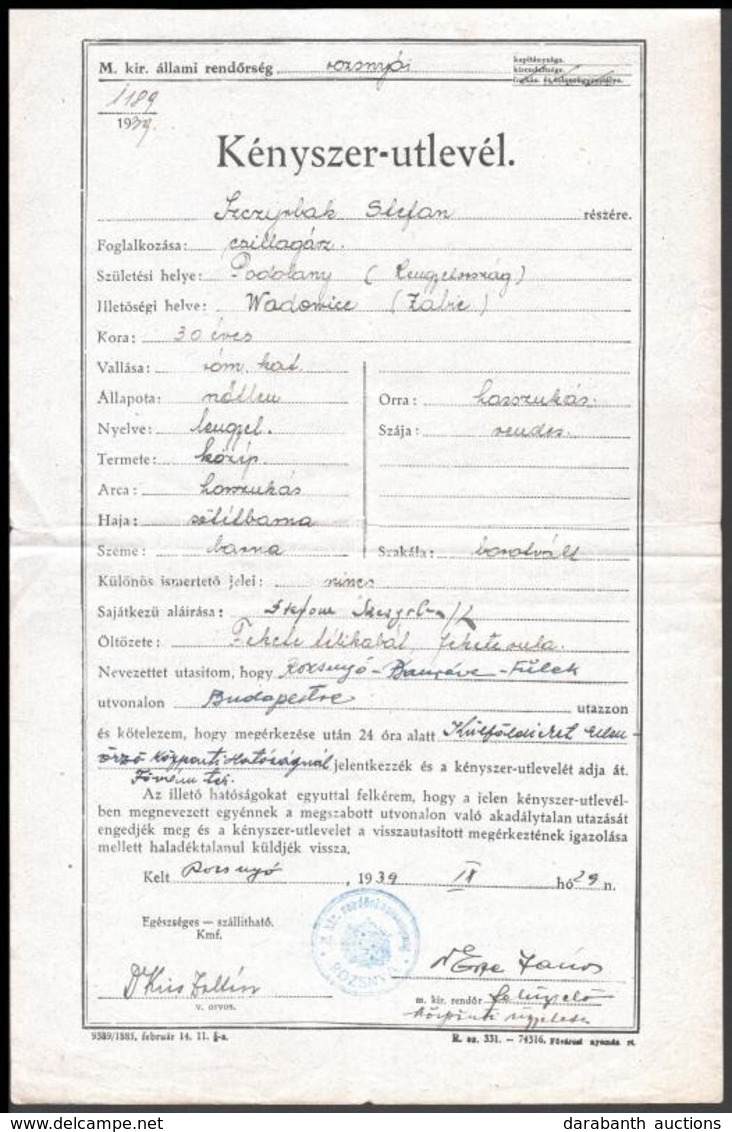 M. kir. állami rendőrség rozsnyói kapitánysága.
kirendeltsége.
1189
1939.
Kényszer-utlevél.
Szczyrbak Stefan részére.
Foglalkozása: csillagász.
Születési helye: Podolany (Lengyelország)
Illetőségi helye: Wadowice (Zabie)
Kora: 30 éves
Vallása: róm. kat.
Állapota: nőtlen Orra: hosszukás.
Nyelve: lengyel. Szája: rendes.
Termete: közép
Arca: hosszukás
Haja: sötétbarna
Szeme: barna Szakála: borotvált
Különös ismertető jelei: nincs
Sajátkezű aláirása: Stefan
Öltözete: Fekete télikabát, fekete ruha.
Nevezettet utasitom, hogy Rozsnyó-Bánréve-Fülek
utvonalon Budapestre utazzon
és kötelezem, hogy megérkezése után 24 óra alatt Külföldieket Ellen-
őrző Központi Hatóságnál jelentkezzék és a kényszer-utlevelét adja át.
Az illető hatóságokat egyuttal felkérem, hogy a jelen kényszer-utlevél-
ben megnevezett egyénnek a megszabott utvonalon való akadálytalan utazását
engedjék meg és a kényszer-utlevelet a visszautasitott megérkeztének igazolása
mellett haladéktalanul küldjék vissza.
Kelt Rozsnyó, 1939 IX hó 29 n.
Egészséges — szállitható.
Kmf.
ROZSNYÓ
Dr Kiss Zoltán János
v. orvos. m. kir. rendőr felügyelő
központi ügyeletes
9389/1885, február 14. 11. §-a. R. sz. 331. — 74316. Fővárosi nyomda rt.
darabanth auctions